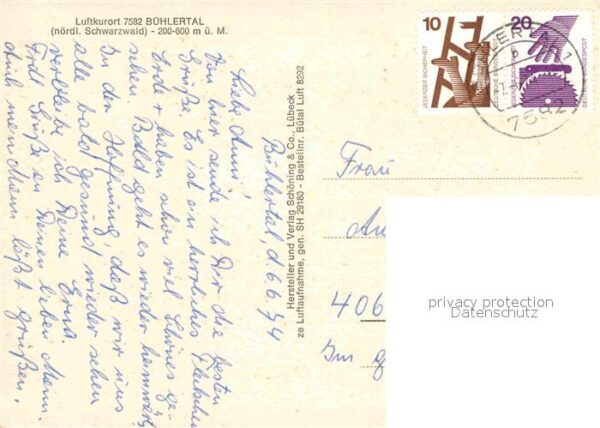 Luftkurort 7582 BÜHLERTAL
(nördl. Schwarzwald) - 200-600 m ü. M.
Bühlertal, d. 6.6.74
Liebe Anni!
Von hier sende ich Dir die besten
Grüße. Es ist ein herrliches Fleckchen
Erde u. haben schon viel Schönes ge-
sehen. Bald geht es wieder heimwärts
In der Hoffnung, daß wir uns
alle bald gesund wieder sehen
verbleibe ich Deine Erna
Frdl. Grüße an Deinen lieben Mann.
Auch mein Mann läßt grüßen.
Hersteller und Verlag Schöning & Co., Lübeck
ze Luftaufnahme, gen. SH 29160 - Bestellnr. Bütal Luft 8292
10
JEDERZEIT SICHERHEIT
DEUTSCHE BUNDESPOST
20
JEDERZEIT SICHERHEIT
DEUTSCHE BUNDESPOST
7582
Frau
406
Im
privacy protection
Datenschutz